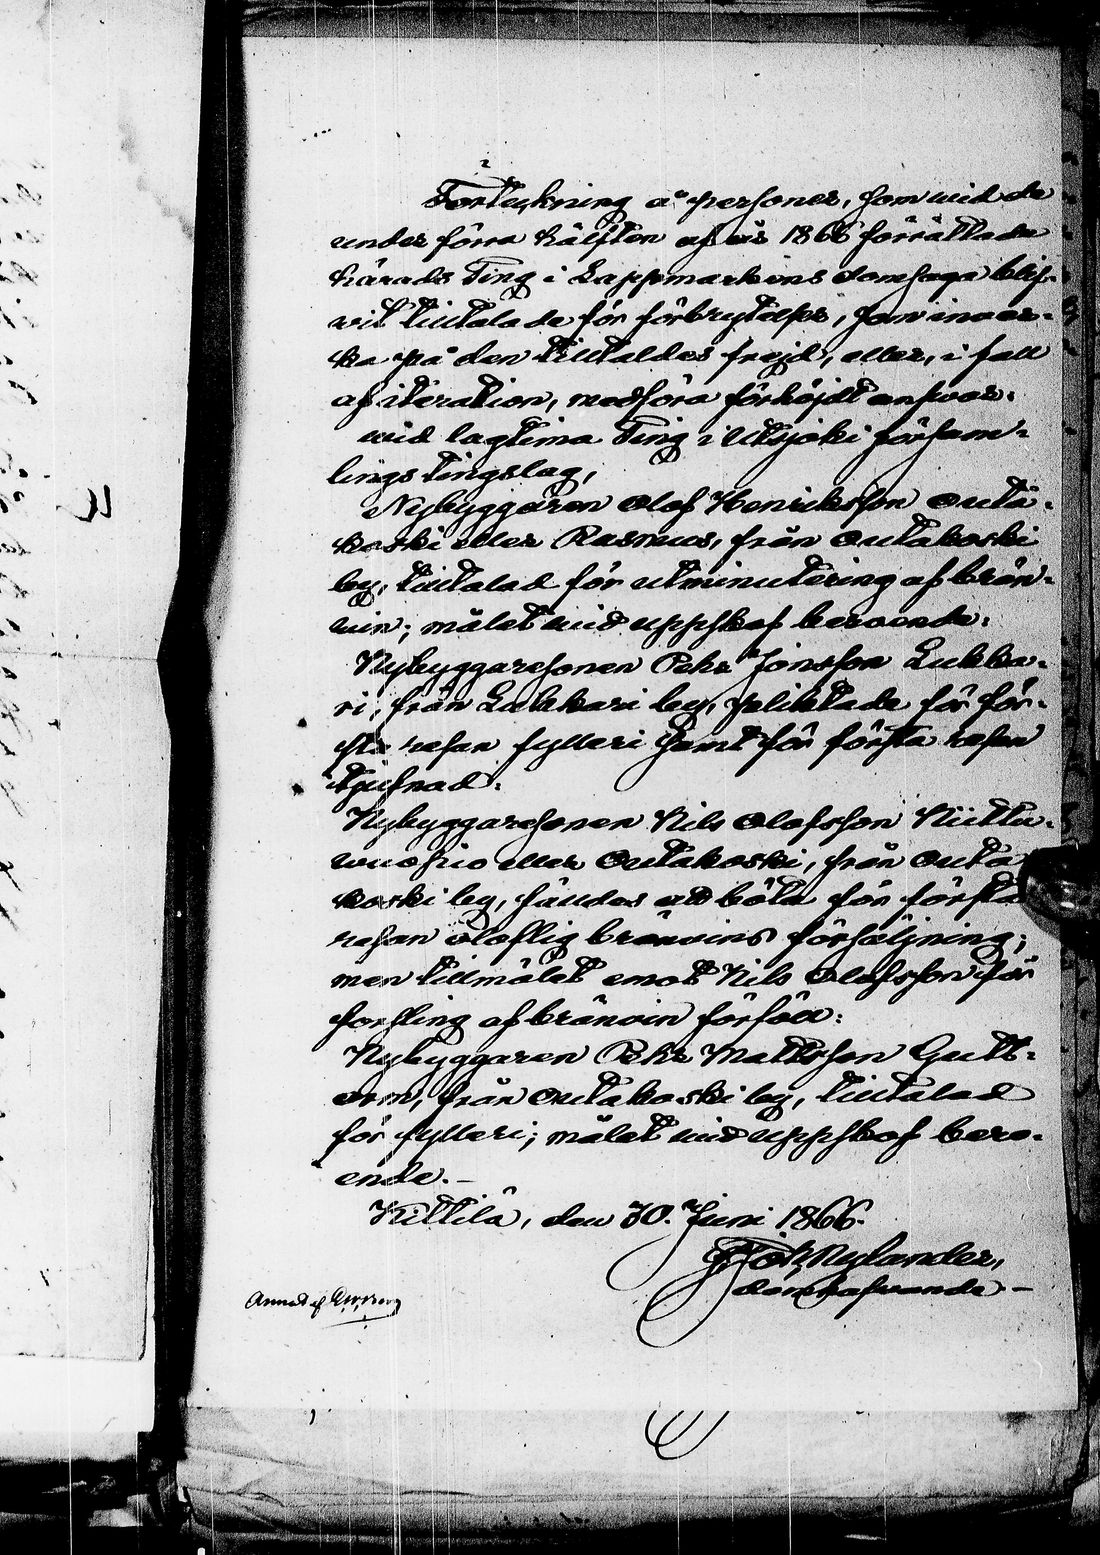 Förteckning å personer, som wid de
under förra hälften af år 1866 förrättade
härads Ting i Lappmarkens domsaga blif-
vit tilltalade för förbrytelser, som inver-
ka på den tilltaldes frejd, eller, i fall
af iteration, medföra förhöjdt answar.
wid lagtima Ting i Utsjoki försam-
lings tingslag,
Nybyggaren Olof Henriksson Outa-
koski eller Rasmus, från Outakoski
by, tilltalad för utminutering af brän-
vin; målet wid uppskof beroende.
Nybyggaresonen Pehr Jonsson Lukka-
ri, från Lukkari by, pliktade för för-
sta resan fylleri samt för första resan
tjufnad.
Nybyggaresonen Nils Olofsson Niittu-
wuopio eller Outakoski, från Outa
koski by, fälldes att böta för första
resan olaflig bränvins försäljning;
men tillmålet emot Nils Olofsson för
forsling af bränvin förföll.
Nybyggaren Pehr Mattsson Gutt-
orm, från Outakoski by, tilltalad
för fylleri; målet wid uppskof bero-
ende.-
Kittilä, den 30. Juni 1866.
Nylander,
domhafwande.-